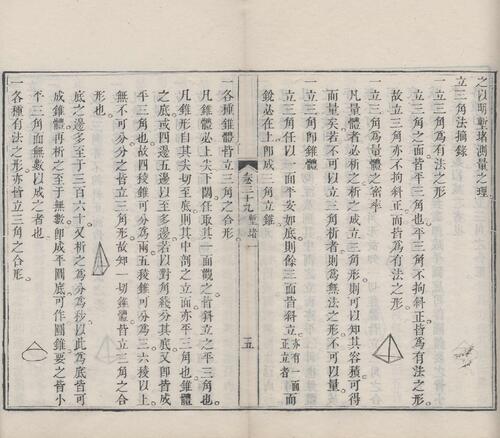 之以明塹堵測量之理
立三角法摘錄
一立三角爲有法之形
立三角之面皆平三角也平三角不拘斜正皆爲有法之形
故立三角亦不拘斜正而皆爲有法之形
一立三角爲量體之密率
凡量體者必析之析之成立三角形則可以知其容積可得
而量矣若不可以立三角析者則爲無法之形不可以量
一立三角卽錐體
立三角任以一面平安如底則餘三面皆斜立亦有一面
正立者而
銳必在上卽成三角立錐
卷三十九 塹堵
五
一各種錐體皆立三角之合形
凡錐體必上尖下闊任取其一面觀之皆斜立之平三角也
凡錐形自其尖切至底則其中剖之立面亦平三角也錐體
之底或四邊五邊以至多邊若以對角綫分其底又卽皆成
平三角也故四稜錐可分爲兩五稜錐可分爲三六稜以上
無不可分分之皆立三角形故知一切錐體皆立三角之合
形也
底之邊多至于三百六十又析之爲分爲秒以此爲底皆可
成錐體再析之至于無數卽成平圓底可作圓錐要之皆小
平三角面無數以成之者也
一各種有法之形亦皆立三角之合形